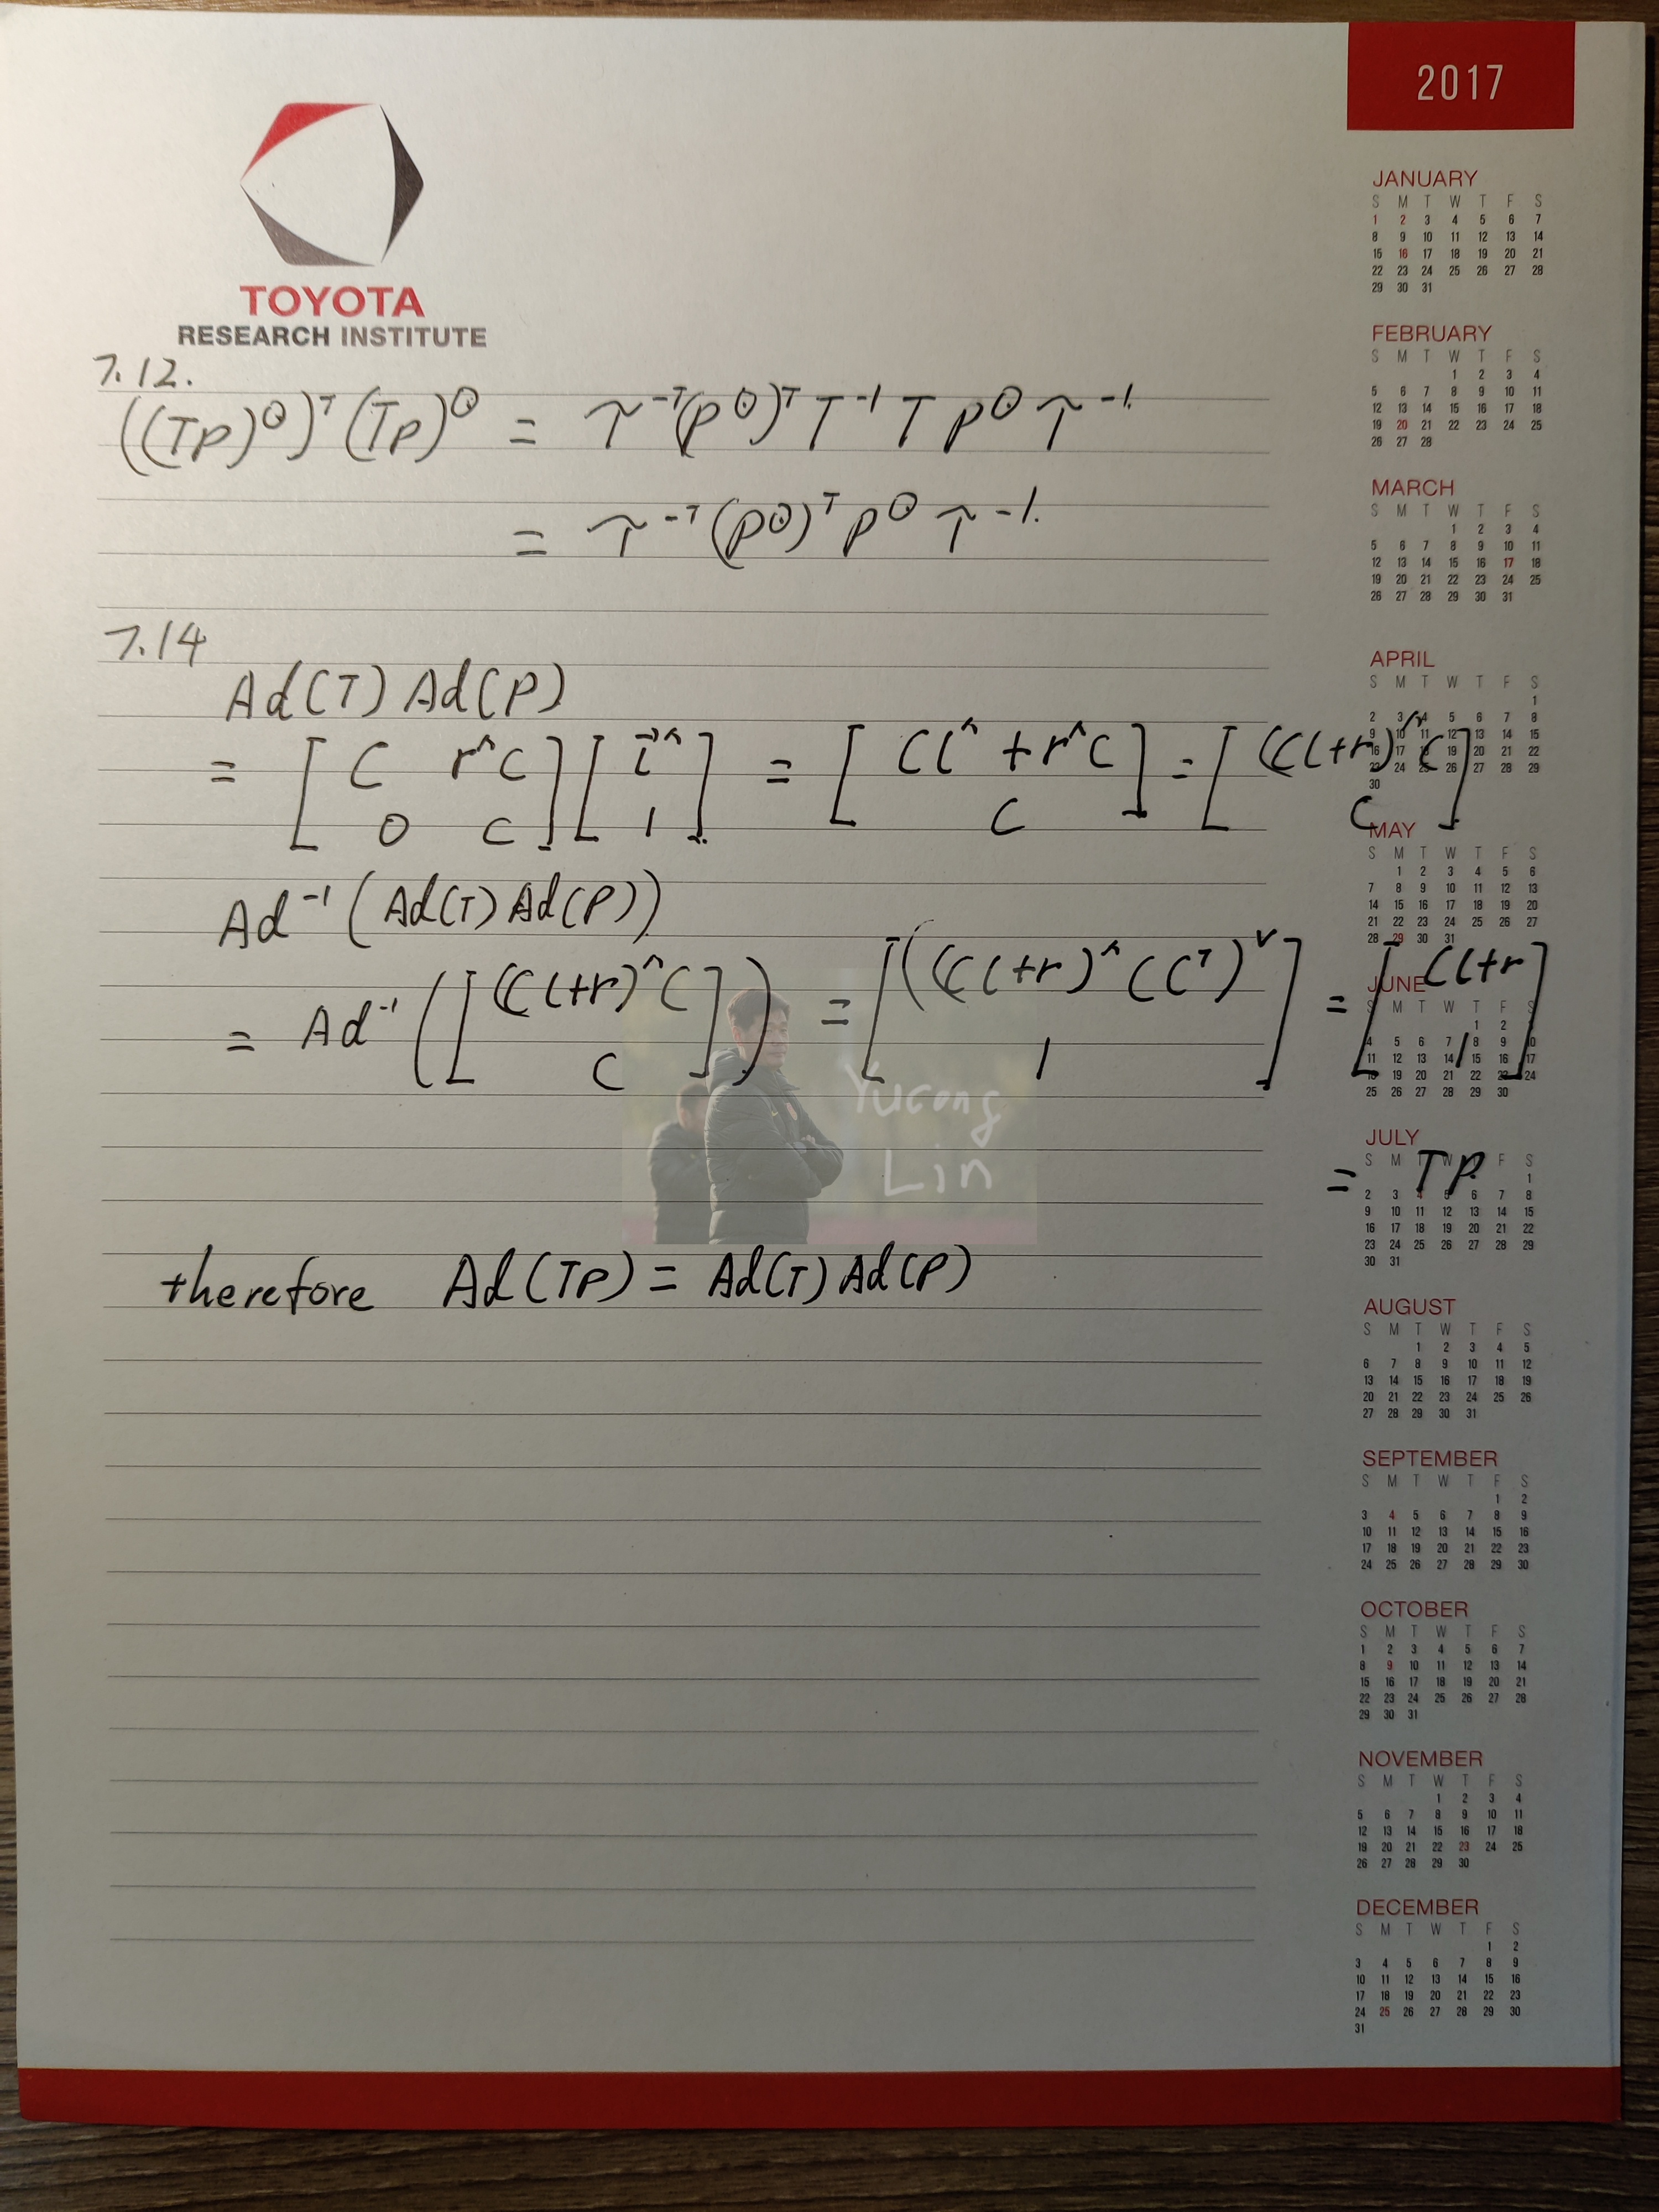 2017
TOYOTA
RESEARCH INSTITUTE
7.12.
((Tp)^⊙)^T (Tp)^⊙ = 𝒯^-T (p^⊙)^T T^-1 T p^⊙ 𝒯^-1.
= 𝒯^-T (p^⊙)^T p^⊙ 𝒯^-1.
7.14
Ad(T) Ad(P)
= [C r^C; 0 C] [l^; 1] = [Cl^ + r^C; C] = [(Cl+r)^C; C]
Ad^-1 (Ad(T) Ad(P))
= Ad^-1 ([(Cl+r)^C; C]) = [((Cl+r)^CC^T)^∨; 1] = [Cl+r; 1]
= TP
therefore Ad(TP) = Ad(T) Ad(P)
Yucong
Lin
JANUARY
S M T W T F S
1 2 3 4 5 6 7
8 9 10 11 12 13 14
15 16 17 18 19 20 21
22 23 24 25 26 27 28
29 30 31
FEBRUARY
S M T W T F S
1 2 3 4
5 6 7 8 9 10 11
12 13 14 15 16 17 18
19 20 21 22 23 24 25
26 27 28
MARCH
S M T W T F S
1 2 3 4
5 6 7 8 9 10 11
12 13 14 15 16 17 18
19 20 21 22 23 24 25
26 27 28 29 30 31
APRIL
S M T W T F S
1
2 3 4 5 6 7 8
10 11 12 13 14 15
16 17 18 19 20 21 22
24 25 26 27 28 29
30
MAY
S M T W T F S
1 2 3 4 5 6
7 8 9 10 11 12 13
14 15 16 17 18 19 20
21 22 23 24 25 26 27
28 29 30 31
JUNE
S M T W T F S
1 2
4 5 6 7 8 9 10
11 12 13 14 15 16 17
19 20 21 22 23 24
25 26 27 28 29 30
JULY
S M T W F S
1
2 3 4 5 6 7 8
9 10 11 12 13 14 15
16 17 18 19 20 21 22
23 24 25 26 27 28 29
30 31
AUGUST
S M T W T F S
1 2 3 4 5
6 7 8 9 10 11 12
13 14 15 16 17 18 19
20 21 22 23 24 25 26
27 28 29 30 31
SEPTEMBER
S M T W T F S
1 2
3 4 5 6 7 8 9
10 11 12 13 14 15 16
17 18 19 20 21 22 23
24 25 26 27 28 29 30
OCTOBER
S M T W T F S
1 2 3 4 5 6 7
8 9 10 11 12 13 14
15 16 17 18 19 20 21
22 23 24 25 26 27 28
29 30 31
NOVEMBER
S M T W T F S
1 2 3 4
5 6 7 8 9 10 11
12 13 14 15 16 17 18
19 20 21 22 23 24 25
26 27 28 29 30
DECEMBER
S M T W T F S
1 2
3 4 5 6 7 8 9
10 11 12 13 14 15 16
17 18 19 20 21 22 23
24 25 26 27 28 29 30
31